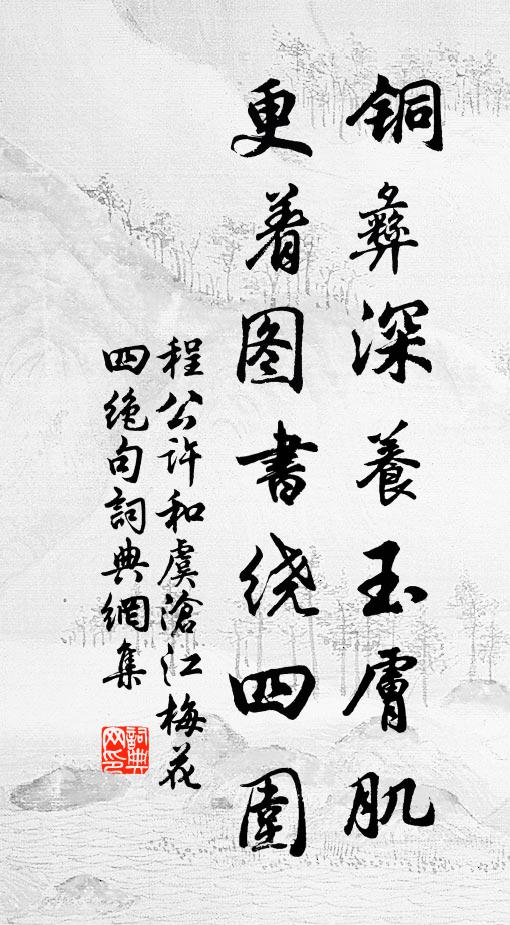 铜彝深養玉膚肌
更着图書绕四圍
程公许和虞滄江梅花
四绝句詞典網集
詞典
网印